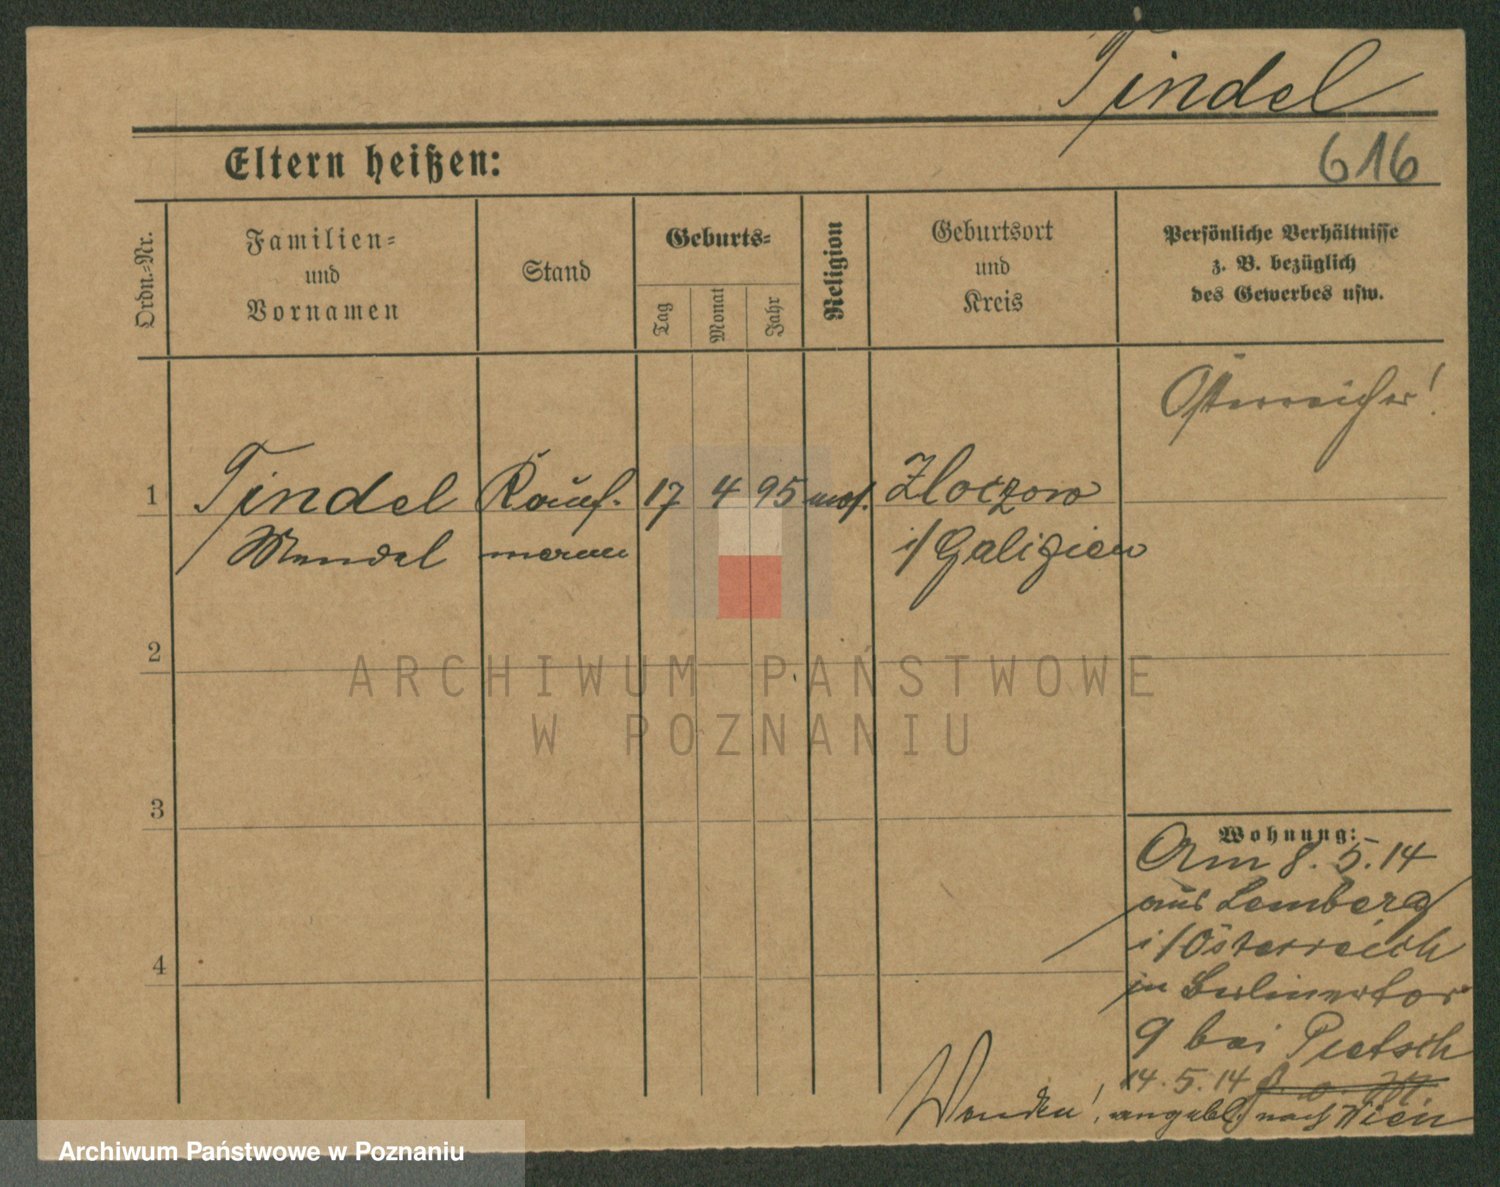 Tindel
616
Eltern heißen:
Ordn.-Nr.
Familien-
und
Vornamen
Stand
Geburts-
Tag
Monat
Jahr
Religion
Geburtsort
und
Kreis
Persönliche Verhältnisse
z. B. bezüglich
des Gewerbes usw.
Österreicher!
1 Tindel Kauf- 17 4 95 mos. Zloczow
Mendel mann i/Galizien
2
ARCHIWUM PAŃSTWOWE
W POZNANIU
3
Wohnung:
Am 8.5.14
aus Lemberg
i/Österreich
4
in Berlinertor
9 bei Pietsch
14.5.14
Wenden! angebl. nach Wien
Archiwum Państwowe w Poznaniu